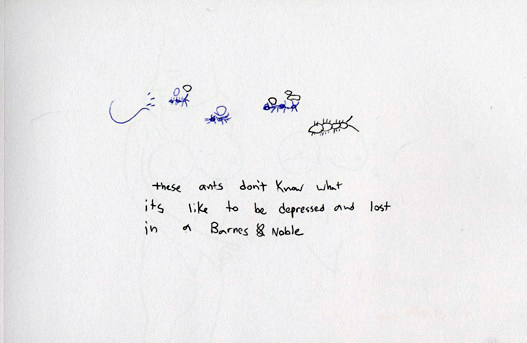 these ants don't know what
its like to be depressed and lost
in a Barnes & Noble